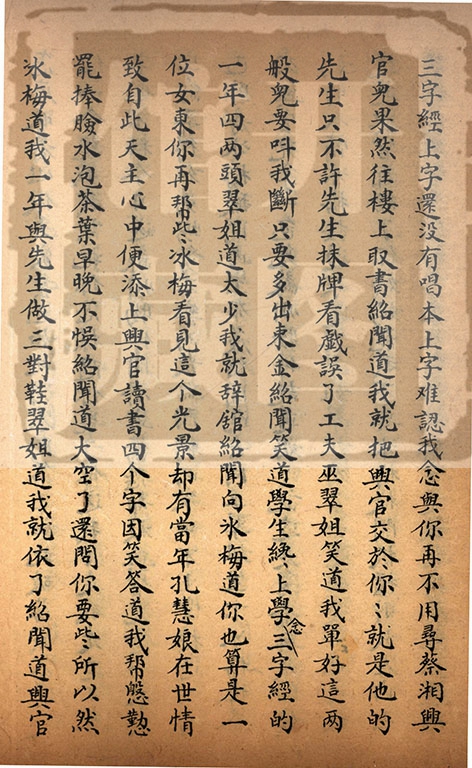 三字經上字還没有唱本上字难認我念與你再不用尋蔡湘興
官兒果然往樓上取書紹聞道我就把興官交於你〻就是他的
先生只不許先生抹牌看戲誤了工夫巫翠姐笑道我單好這两
般兒要呌我斷只要多出束金紹聞笑道學生終〻上學念三字經的
一年四两頭翠姐道太少我就辞舘紹聞向氷梅道你也算是一
位女東你再帮些〻氷梅看見這个光景却有當年孔慧娘在世情
致自此天主心中便添上興官讀書四个字因笑答道我帮慇懃
罷捧臉水泡茶葉早晚不悞紹聞道大空了還問你要些〻所以然
氷梅道我一年與先生做三對鞋翠姐道我就依了紹聞道興官